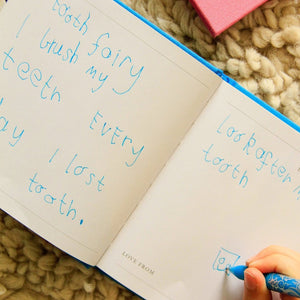 tooth fairy
I brush my
teeth
EVERY
day
I lost
tooth.
LOVE FROM
Look after
tooth